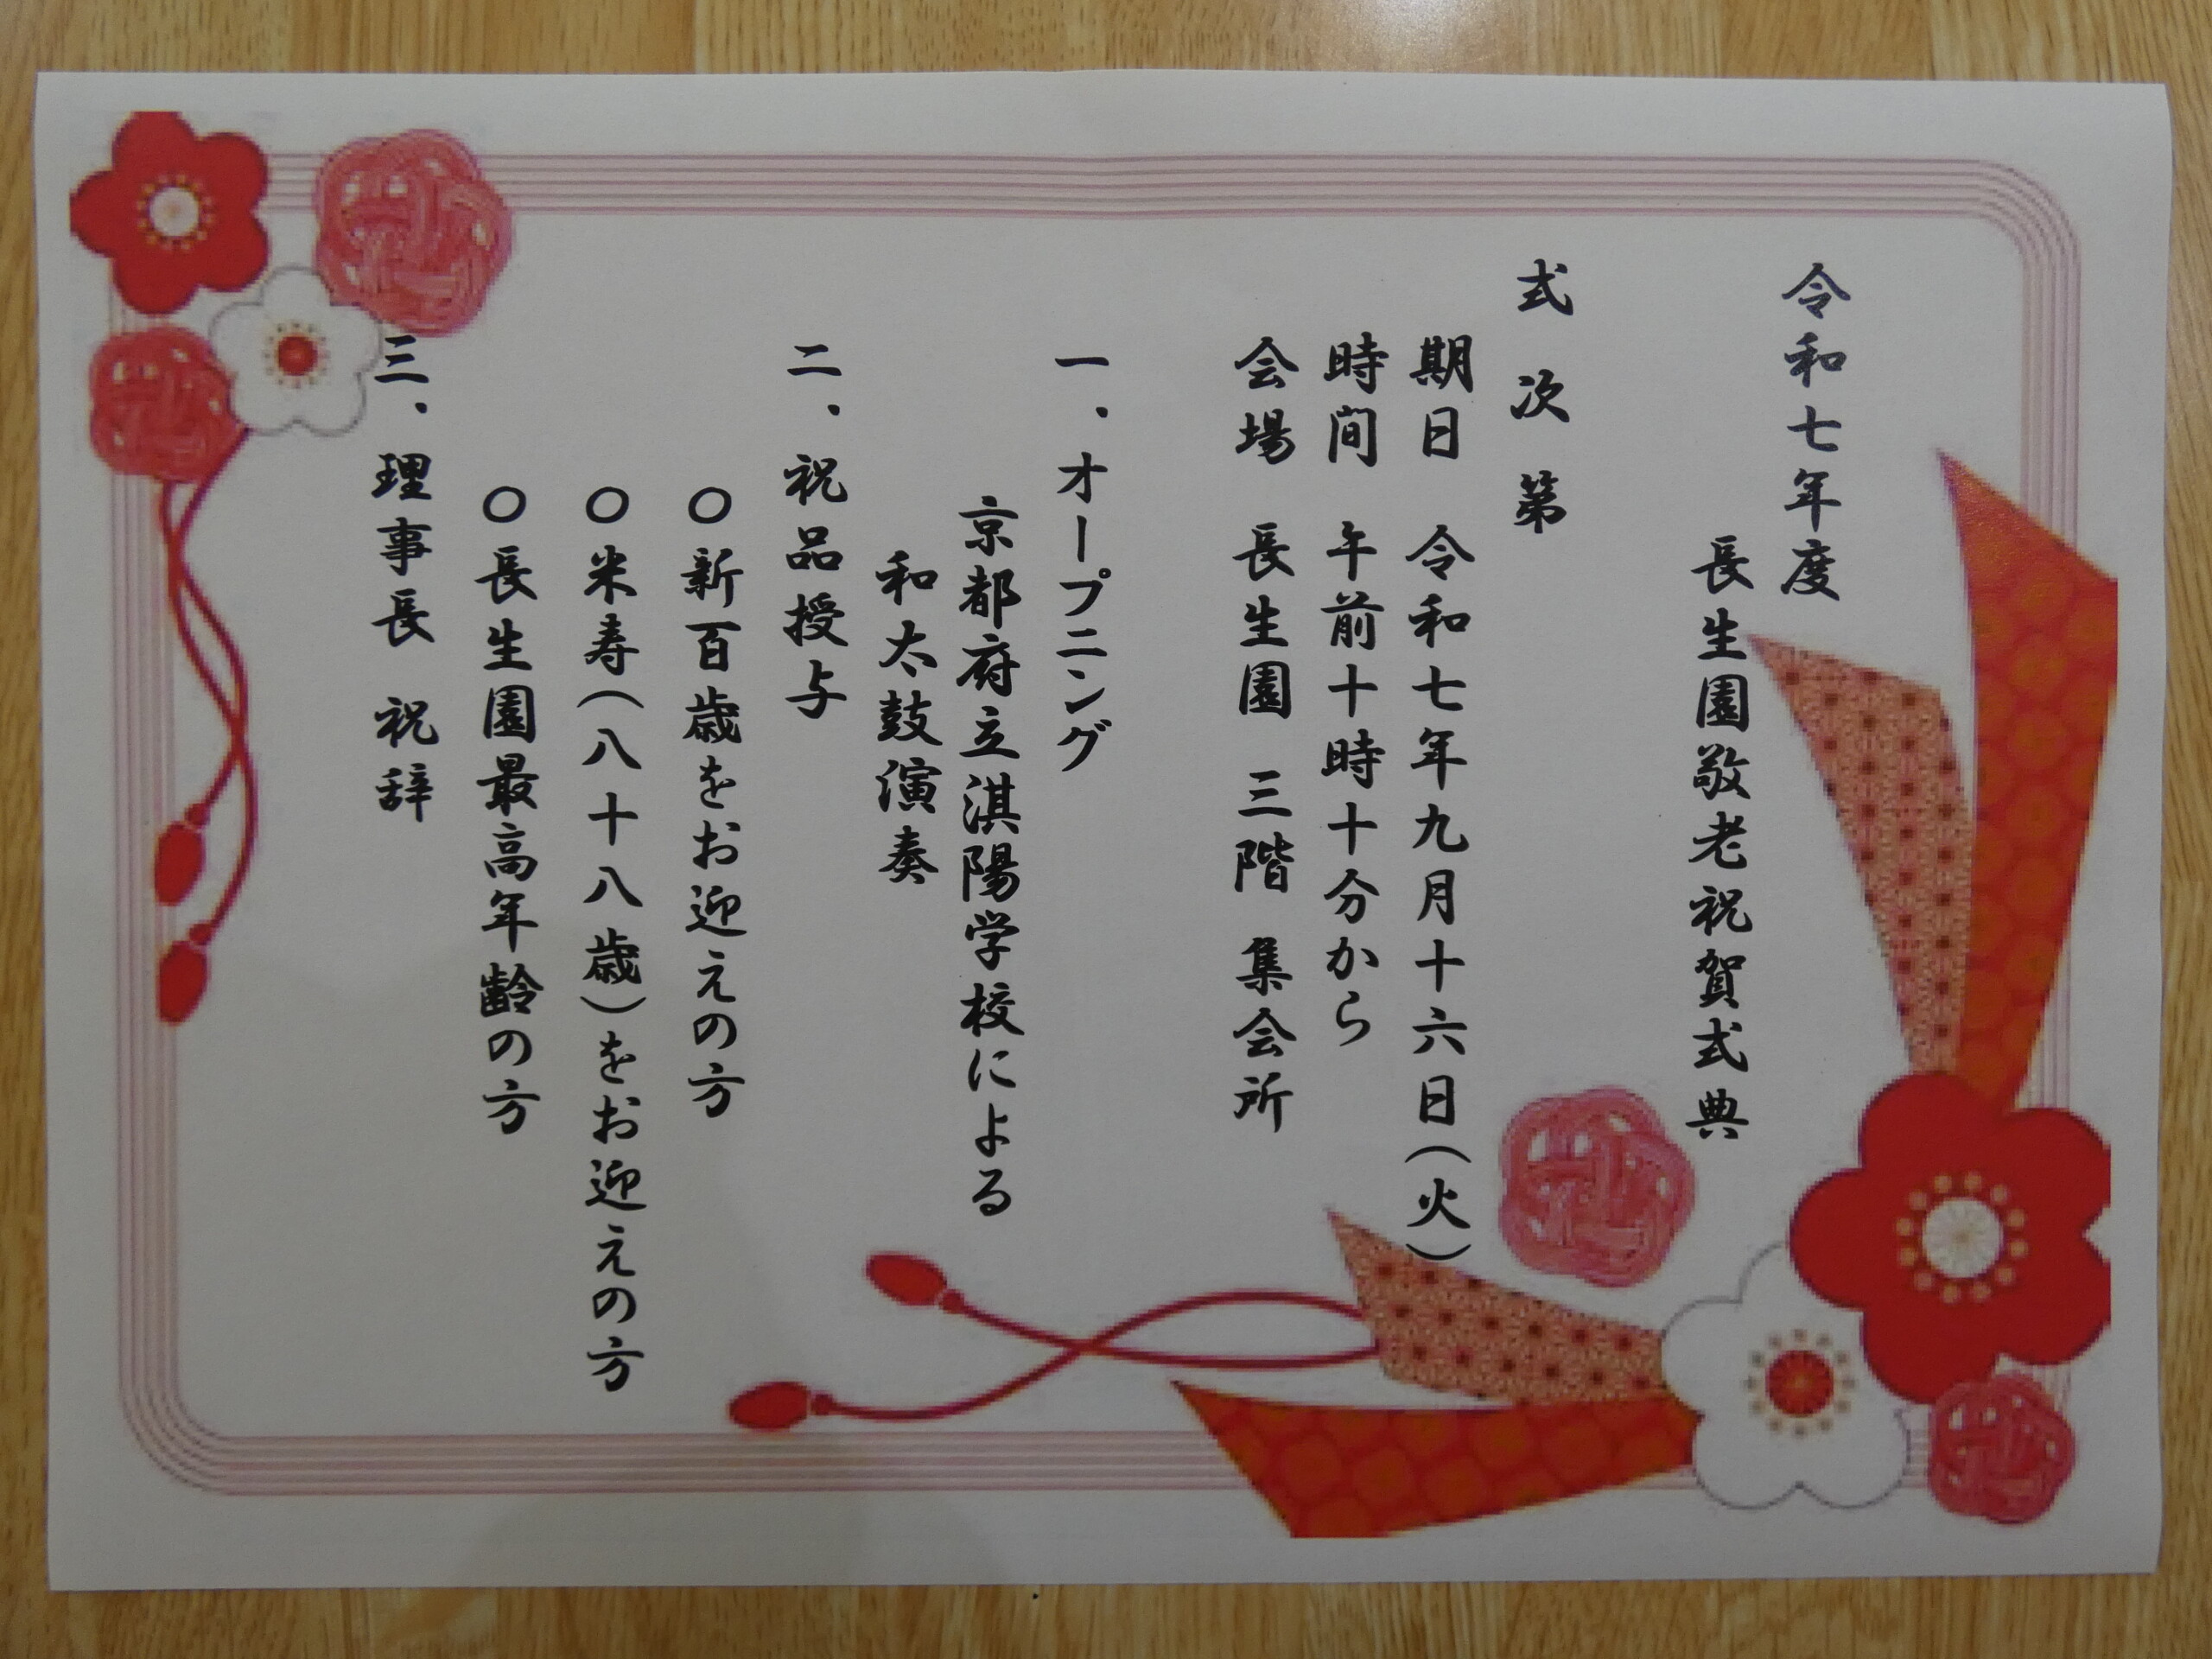 令和七年度
長生園敬老祝賀式典
式次第
期日 令和七年九月十六日(火)
時間 午前十時十分から
会場 長生園 三階 集会所
一、オープニング
京都府立淇陽学校による
和太鼓演奏
二、祝品授与
○新百歳をお迎えの方
○米寿(八十八歳)をお迎えの方
○長生園最高年齢の方
三、理事長 祝辞